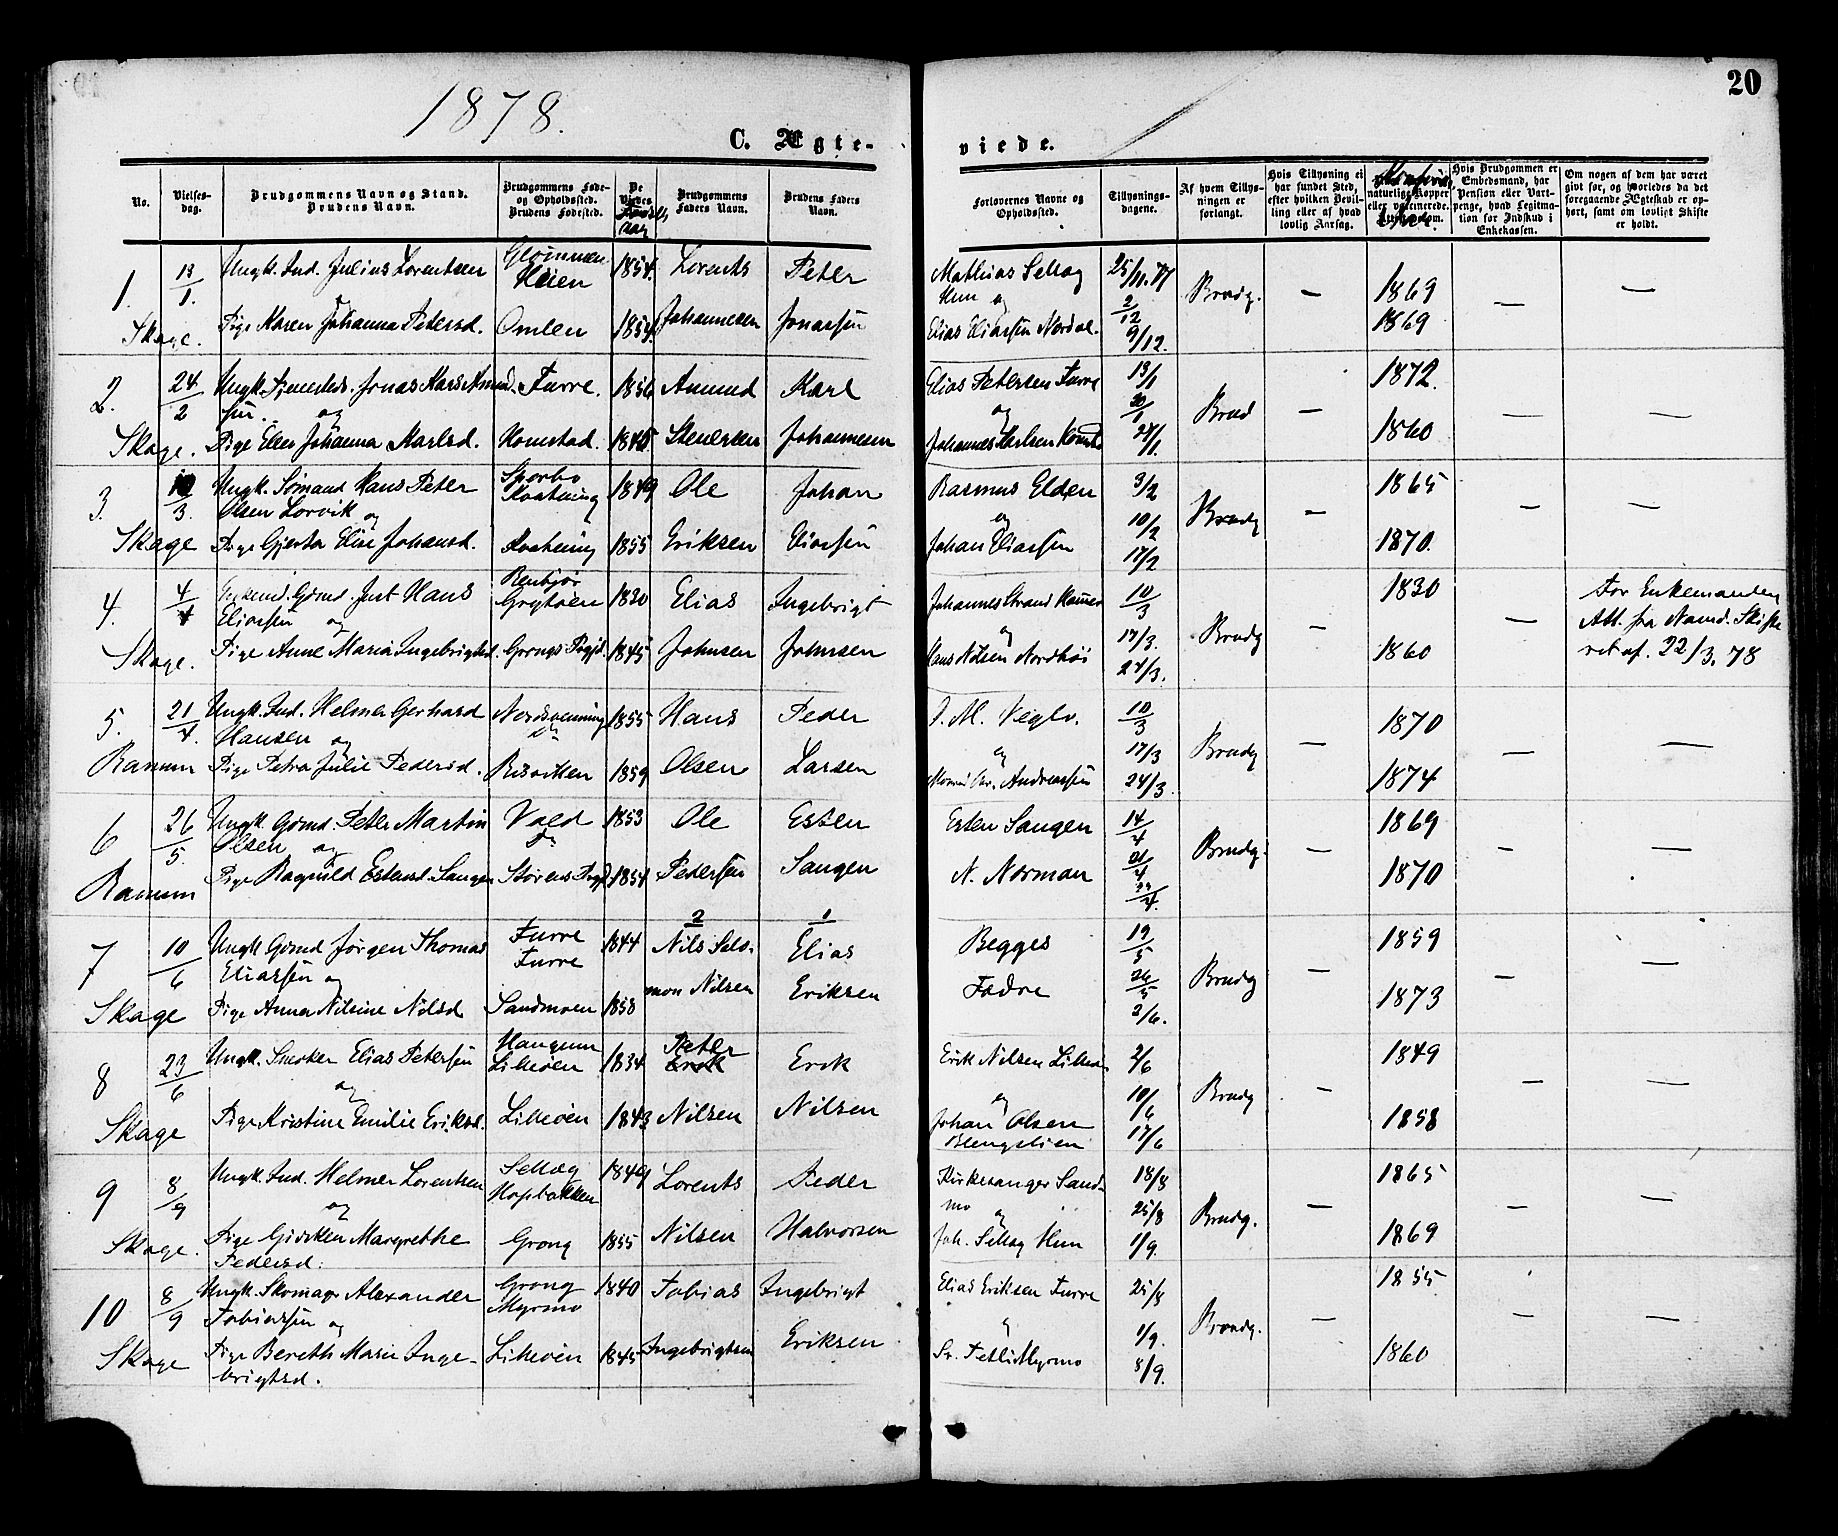 1878.
20
C. Ægte-
viede.
No.
Vielses-
dag.
Brudgommens Navn og Stand.
Brudens Navn.
Brudgommens Føde-
og Opholdssted.
Brudens Fødested.
De
Viedes
Brudgommens
Faders Navn.
Brudens Faders
Navn.
Forlovernes Navne og
Opholdssted.
Tillysnings-
dagene.
Af hvem Tillys-
ningen er
forlangt.
Hvis Tillysning ei
har fundet Sted,
efter hvilken Bevil-
ling eller af hvad
lovlig Aarsag.
naturlige Kopper
eller vaccinerede.
Hvis Brudgommen er
Embedsmand, har
Pension eller Vart-
penge, hvad Legitima-
tion for Indskud i
Enkekassen.
Om nogen af dem har været
givt før, og hvorledes da det
foregaaende Ægteskab er op-
hørt, samt om lovligt Skifte
er holdt.
1. 13/1. Ungk. Ind. Julius Lorentsen Glømmen 1854. Lorents Peter Mathias Sellæg 25/11.77 Brudg. — 1869 — —
Heien Hun og 2/12 1869
Skage. Pige Maren Johanna Petersd. Omlen 1854. Johannesen Jonassen Elias Eliassen Nordal. 9/12.
2. 24/2 Ungk. Tjenestedr. Jonas Mars Amund- Furre. 1856 Amund Karl Elias Petersen Furre 13/1 Brud — 1872. — —
sen. og og 20/1
Skage. Pige Ellen Johanna Karlsd. Homstad. 1845. Stenersen Johannesen Johannes Karlsen 27/1. 1860
3. 10/3. Ungk. Sømand Hans Peter Spørbo 1849 Ole Johan Rasmus Elden 3/2 Brudg — 1865 — —
Olsen Lorvik og og 10/2
Skage Pige Gjertru Eline Johansd. 1855 Eriksen Eliassen Johan Eliassen 17/2 1870.
4. 4/4 Gmd. Just Hans Renbjør 1830 Elias Ingebrigt Johannes Strand 10/3 Brudg — 1830 — For Enkemanden
Eliassen og Grøtøen og 17/3. Att. fra Namd. Skifte
Skage. Pige Anne Maria Ingebrigtsd. Grongs Prgjd. 1845 Johnsen Johnsen Hans Nilsen Nordhöi 24/3. 1860 ret af. 22/3. 78
5. 21/4. Ungk. Ind. Helmer Gerhard 1855 Hans Peder J. M. Veglo. 10/3 Brudg — 1870 — —
Hansen og og 17/3
Ranum Pige Petra Julie Pedersd. Risvikken 1859 Olsen Larsen Andreassen 24/3. 1874
6 26/5. Ungk. Gmd. Peter Martin Vold 1853 Ole Esten Esten Sangen 14/4 Brudg. — 1869 — —
Olsen og Do 21/4
Ranum Pige Ragnild Estensd. Sangen Størens Prgjd. 1854 Pedersen Sangen N. Norman 22/4. 1870
7 10/6 Ungk Gmd Jørgen Thomas Furre 1844 2 Nils Salo- 1 Elias Begges 19/5 Brudg — 1859 — —
Eliassen og Furre mon Nilsen Eriksen Fædre 26/5
Skage Pige Anna Nilsine Nilsd. Sandmoen 1858 2/6. 1873
8 23/6 Ungk. Snekker Elias Petersen Haugum 1834 Peter Erik Erik Nilsen Lilleø 2/6 Brudg — 1849 — —
og Lilleøen og 10/6
Skage Pige Kristine Emilie Eriksd. Lilleøen 1843 Nilsen Nilsen Johan Olsen 17/6 1858
Blengslien
9 8/9 Ungk. Ind. Helmer Lorentsen Sellæg 1849 Lorents Peder Kirkesanger Sand- 18/8 Brudg. — 1865 — —
og Hopbakken mo og 25/8
Skage. Pige Gjørken Margrethe Grong 1855 Nilsen Halvorsen Joh. Sellæg Hun 1/9. 1869
Pedersd:
10 8/9 Ungk. Skomager Alexander Grong 1840 Tobias Ingebrigt Elias Eriksen Furre 25/8 Brudg. — 1855. — —
Tobiassen og Myrmo og 1/9.
Skage Pige Bereth Marie Inge- Lilleøen 1845 Ingebrigtsen Eriksen Myrmo 8/9. 1860
brigtsd.